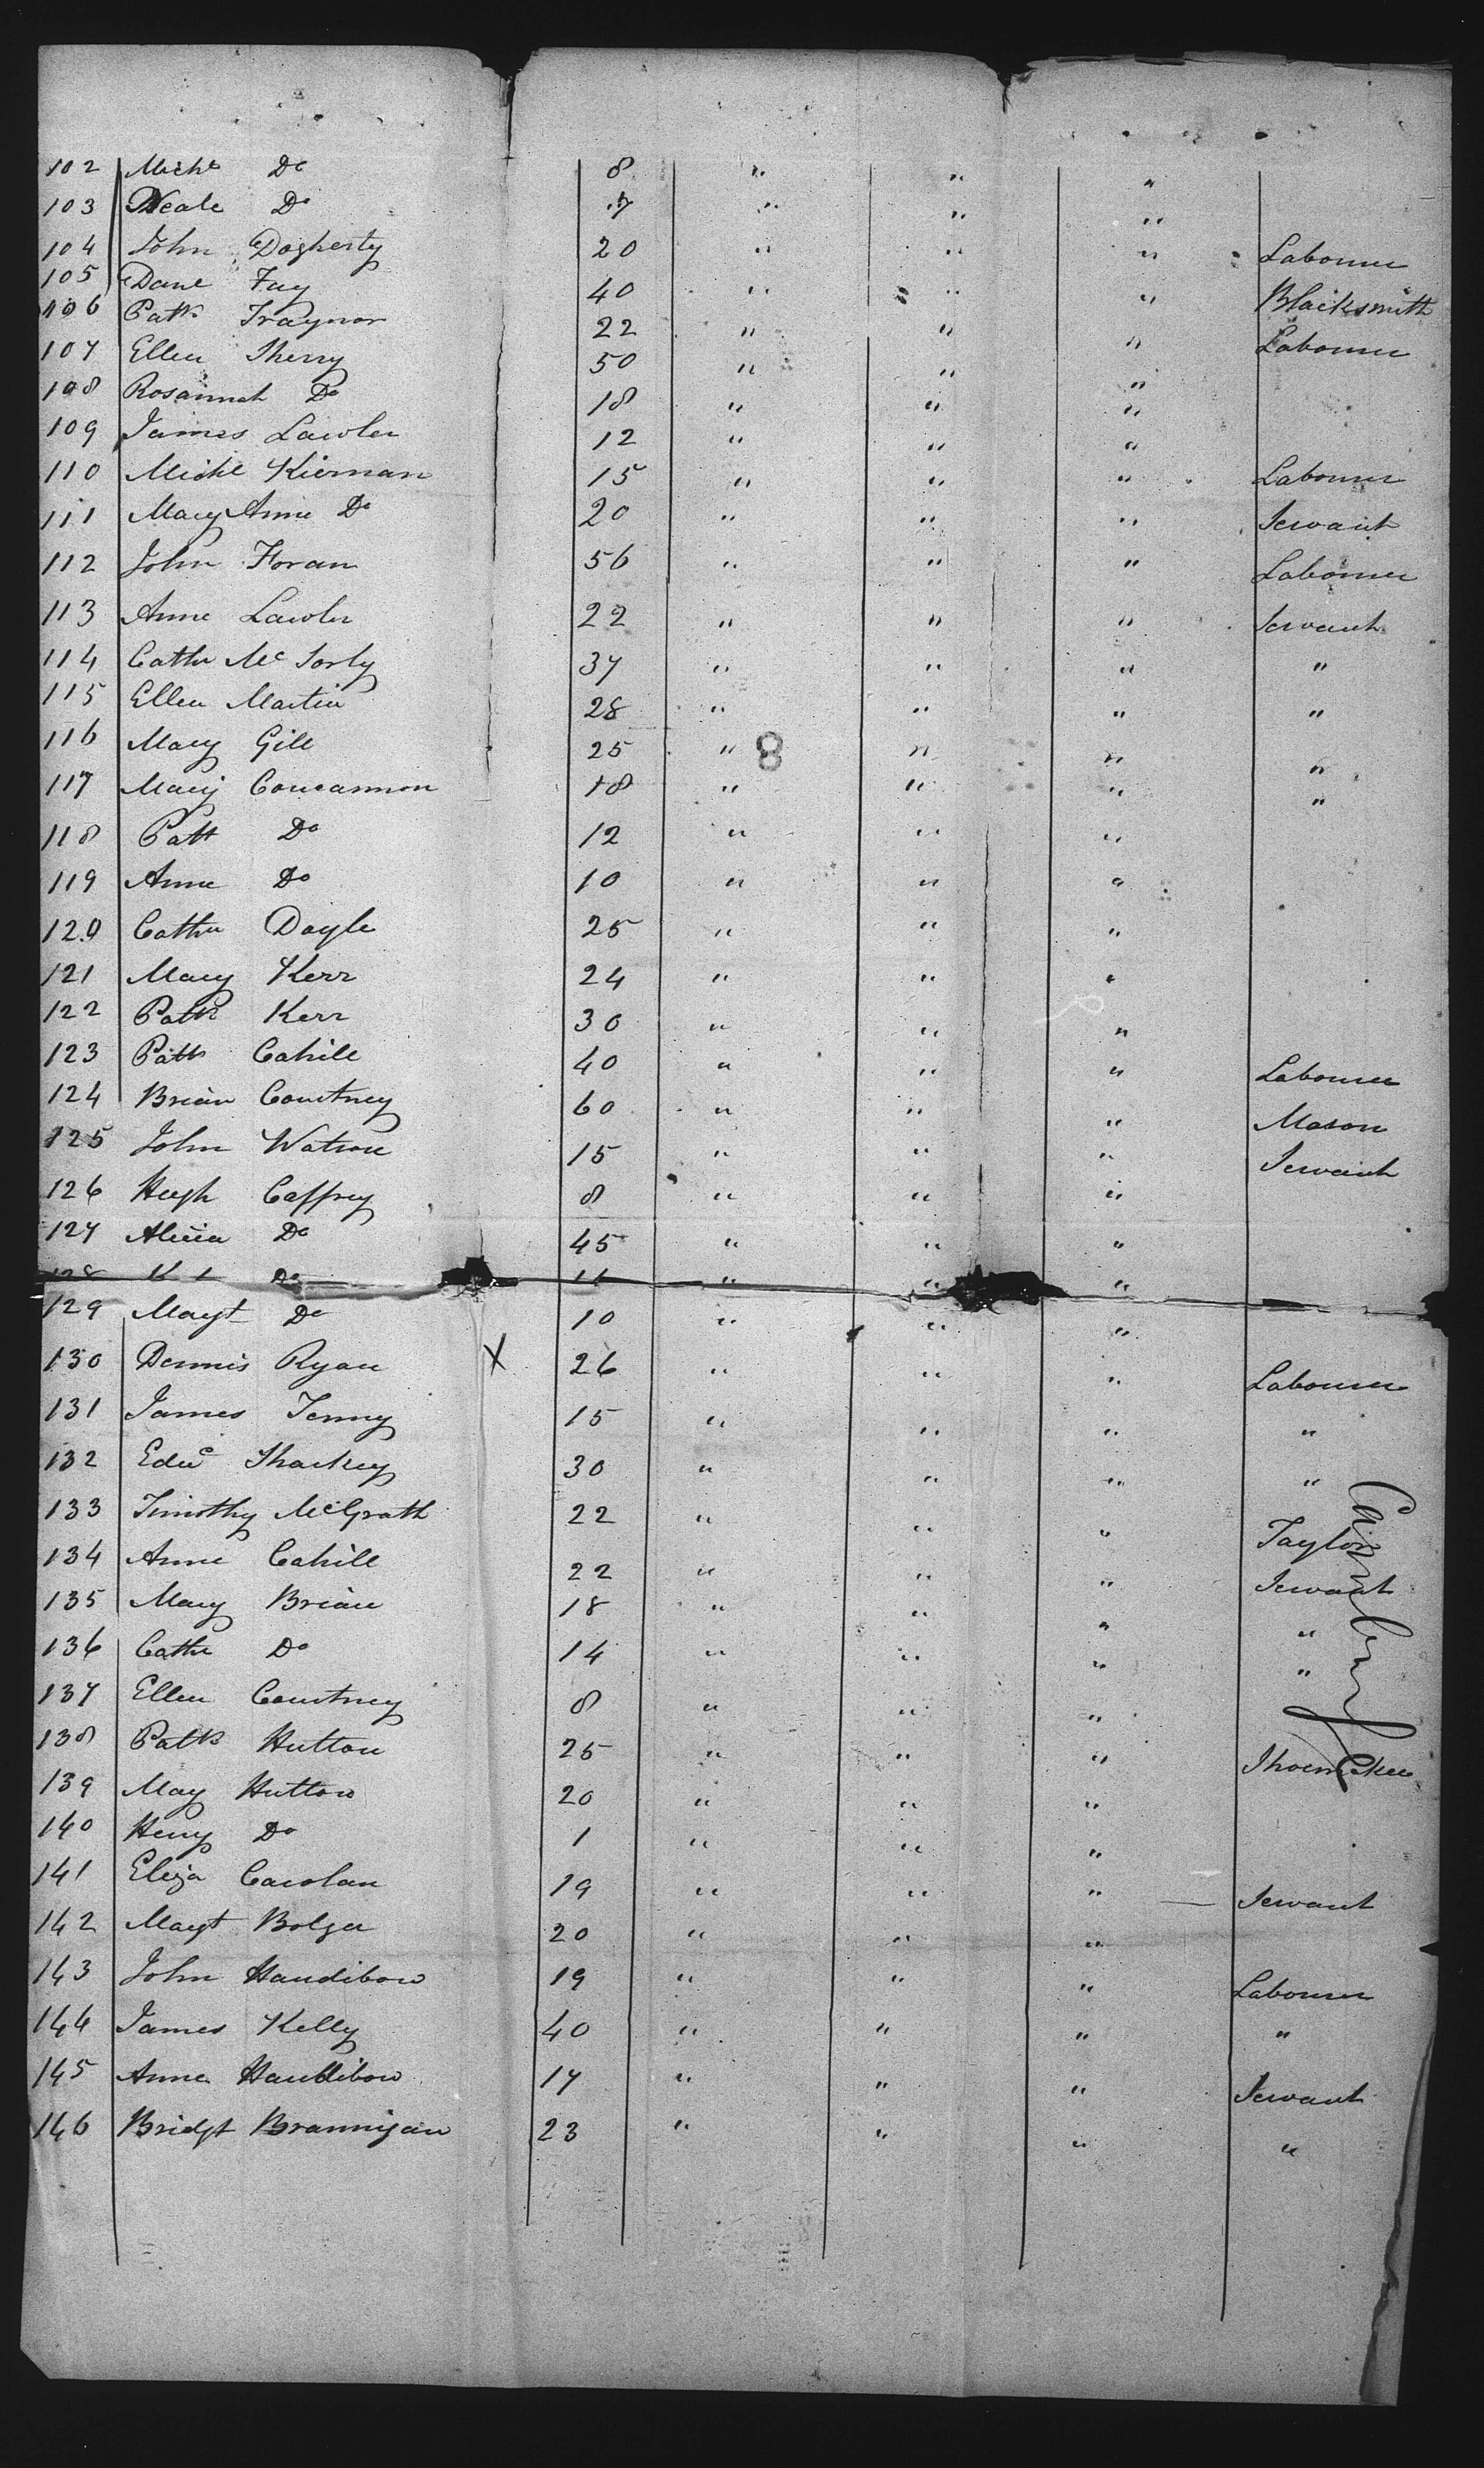 102 Michl Do 8 " " "
103 Neale Do 7 " " "
104 John Dogherty 20 " " " Labourer
105 Dane Fay 40 " " " Blacksmith
106 Patk Traynor 22 " " " Labourer
107 Ellen Sherry 50 " " "
108 Rosannah Do 18 " " "
109 James Lawler 12 " " "
110 Michl Kiernan 15 " " " Labourer
111 Mary Anne Do 20 " " " Servant
112 John Foran 56 " " " Labourer
113 Anne Lawler 22 " " " Servant
114 Cathe Mc Sorly 37 " " " "
115 Ellen Martin 28 " " " "
116 Mary Gill 25 " 8 " " "
117 Mary Concannon 18 " " " "
118 Patt Do 12 " " "
119 Anne Do 10 " " "
120 Cathe Doyle 25 " " "
121 Mary Kerr 24 " " "
122 Patk Kerr 30 " " "
123 Patk Cahill 40 " " " Labourer
124 Brian Courtney 60 " " " Mason
125 John Watson 15 " " " Servant
126 Hugh Caffrey 8 " " "
127 Alicia Do 45 " " "
128 Do 11 " " "
129 Mayt Do 10 " " "
130 Dennis Ryan X 26 " " " Labourer
131 James Tenny 15 " " " "
132 Edwd Sharkey 30 " " " "
133 Timothy McGrath 22 " " " Taylor
134 Anne Cahill 22 " " " Servant
135 Mary Brian 18 " " " "
136 Cathe Do 14 " " " "
137 Ellen Courtney 8 " " "
138 Patk Hutton 25 " " " Shoemaker
139 May Hutton 20 " " "
140 Henry Do 1 " " "
141 Eliza Carolan 19 " " " Servant
142 Mayt Bolger 20 " " "
143 John Haudibow 19 " " " Labourer
144 James Kelly 40 " " " "
145 Anne Haudibow 17 " " " Servant
146 Bridgt Brannigan 23 " " " "